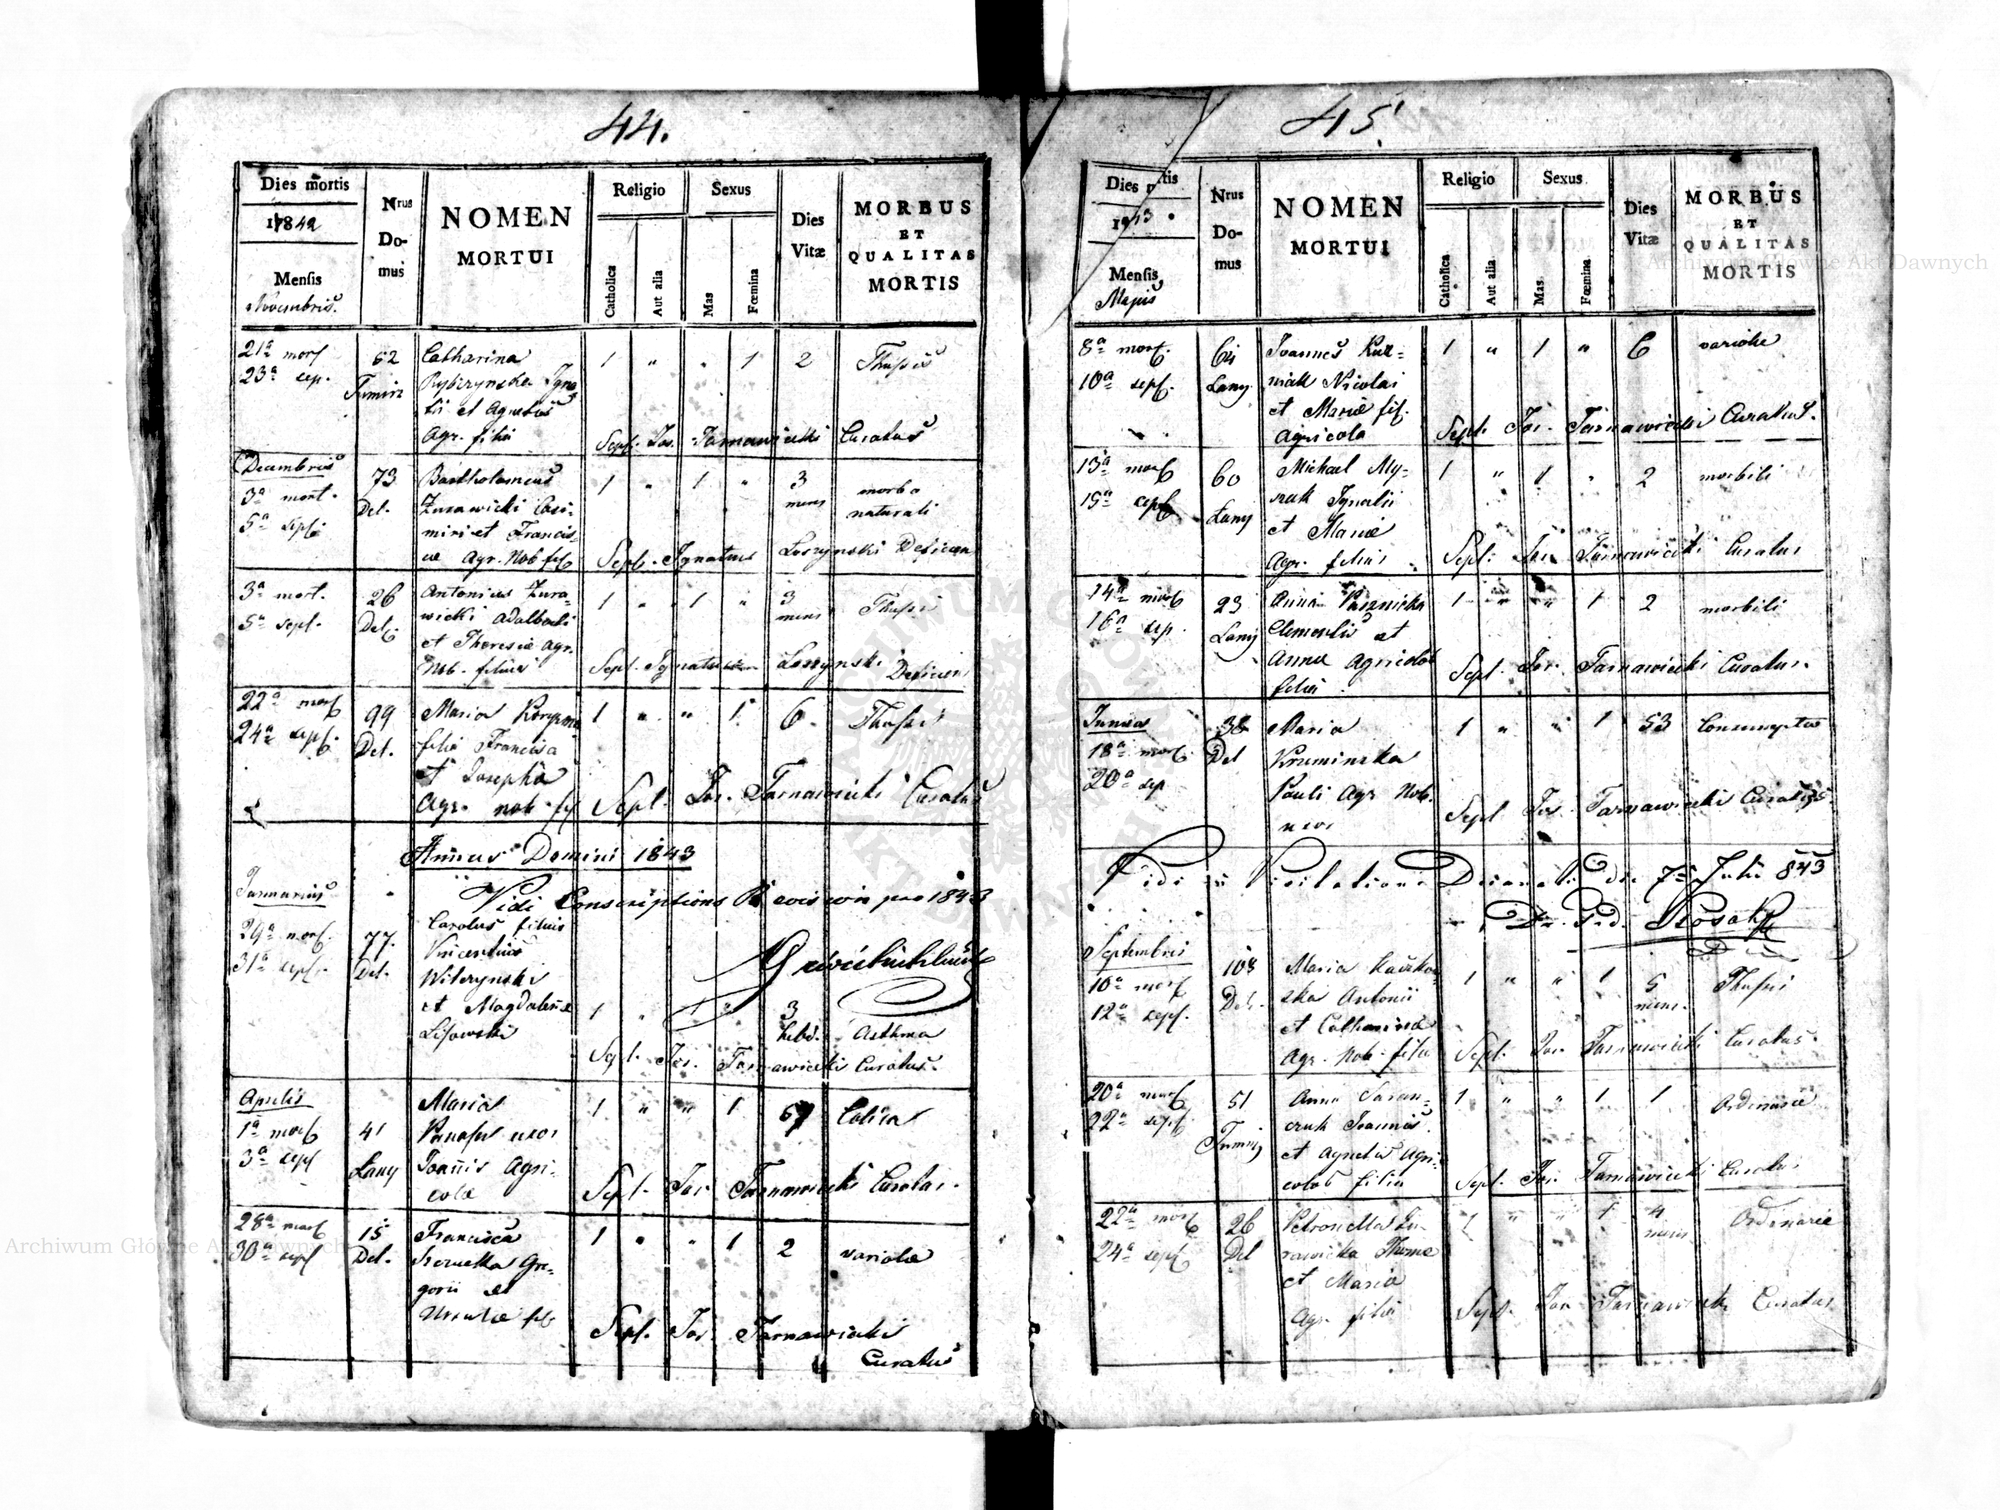 44.
Dies mortis
1842
Mensis
Novembris.
Nrus
Do-
mus
NOMEN
MORTUI
Religio
Catholica
Aut alia
Sexus
Mas
Fœmina
Dies
Vitæ
MORBUS
ET
QUALITAS
MORTIS
21a mort
23a sep.
62
Catharina
et Agnetis
Agr. filia
1 " " 1 2 Thussis
Sept. Jos. Tarnawiecki Curatus
Decembris
3a mort.
5a sept.
73
Del.
Bartholomeus
Zurawicki Casi-
miri et Francis-
cæ Agr. Nob fil
1 " 1 " 3
mens
morbo
naturali
Sept. Ignatius Loszynski Deficien
3a mort.
5a sept.
26
Del.
Antonius Zura-
wicki Adalberti
et Theresiæ Agr.
Nob. filius
1 " 1 " 3
mens
Thussi
Sept. Ignatius Loszynski Deficien
22a mort
24a sept.
99
Del.
Maria
filia Francisci
et Josepha
Agr. nob. fil
1 " " 1 6 Thussi
Sept. Jos. Tarnawiecki Curatus
Annus Domini 1843
Vidi Conscriptions Revision pro 1843
Januarius
29a mort.
31a sept.
77.
Del.
Carolus filius
Vincentius
Witzynski
et Magdalenæ
Lisowski
1 " 1 " 3
hebd.
Asthma
Sept. Jos. Tarnawiecki Curatus.
Aprilis
1a mort
3a sept
41
Lany
Maria
uxor
Joannis Agri-
colæ
1 " " 1 67 Colica
Sept. Jos. Tarnawiecki Curatus.
28a mort
30a sept
15
Del.
Francisca
Gre-
gorii et
Ursulæ fil
1 " " 1 2 variolæ
Sept. Jos. Tarnawiecki
Curatus
45.
Dies mortis
1843.
Mensis
Majus
Nrus
Do-
mus
NOMEN
MORTUI
Religio
Catholica
Aut alia
Sexus
Mas
Fœmina
Dies
Vitæ
MORBUS
ET
QUALITAS
MORTIS
8a mort.
10a sept.
64
Lany
Joannes Kuz-
niak Nicolai
et Mariæ fil.
Agricola
1 " 1 " 6 variolæ
Sept. Jos. Tarnawiecki Curatus.
13a mort
15a sept
60
Lany
Michael My-
Ignatii
et Mariæ
Agr. filius
1 " 1 " 2 morbili
Sept. Jos. Tarnawiecki Curatus
14a mort
16a sep.
23
Lany
Anna
Clementis et
Annæ Agricolæ
filia
1 " " 1 2 morbili
Sept. Jos. Tarnawiecki Curatus.
Junius
18a mort.
20a sep
38
Del
Maria
Kruminska
Pauli Agr Nob.
uxor
1 " " 1 53 Consumptio
Sept Jos Tarnawiecki Curatus
Vidi in Visitatione Decanali die 7a Julii 843
Septembris
10a mort
12a sept.
108
Del.
Maria Kaczkow-
ska Antonii
et Catharinæ
Agr. Nob. filia
1 " " 1 5
mens.
Thussi
Sept. Jos. Tarnawiecki Curatus.
20a mort
22a sept
51
Anna Saran-
czuk Joannis
et Agnetis Agri-
colæ filia
1 " " 1 1 Ordinarie
Sept. Jos. Tarnawiecki Curatus
22a mort
24a sept
26
Del
Petronella Zu-
rawicka Thomæ
et Maria
Agr. filia
1 " " 1 4
mens
Ordinarie
Sept. Jos Tarnawiecki Curatus
Archiwum Główne Akt Dawnych
Archiwum Główne Akt Dawnych
ARCHIWUM GŁÓWNE AKT DAWNYCH